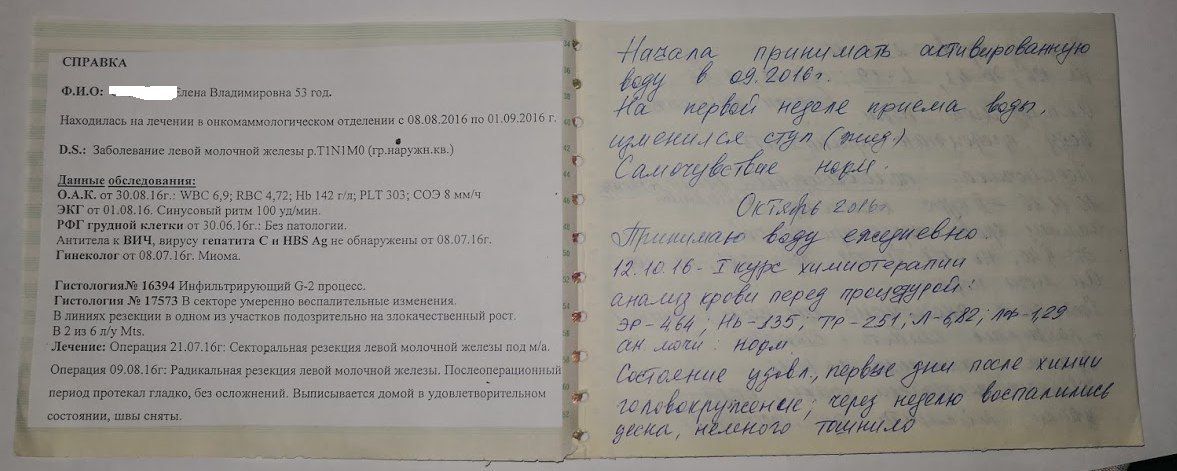 СПРАВКА
Ф.И.О: Елена Владимировна 53 год.
Находилась на лечении в онкомаммологическом отделении с 08.08.2016 по 01.09.2016 г.
D.S.: Заболевание левой молочной железы p.T1N1M0 (гр.наружн.кв.)
Данные обследования:
О.А.К. от 30.08.16г.: WBC 6,9; RBC 4,72; Hb 142 г/л; PLT 303; СОЭ 8 мм/ч
ЭКГ от 01.08.16. Синусовый ритм 100 уд/мин.
РФГ грудной клетки от 30.06.16г.: Без патологии.
Антитела к ВИЧ, вирусу гепатита С и HBS Ag не обнаружены от 08.07.16г.
Гинеколог от 08.07.16г. Миома.
Гистология№ 16394 Инфильтрирующий G-2 процесс.
Гистология № 17573 В секторе умеренно воспалительные изменения.
В линиях резекции в одном из участков подозрительно на злокачественный рост.
В 2 из 6 л/у Mts.
Лечение: Операция 21.07.16г: Секторальная резекция левой молочной железы под м/а.
Операция 09.08.16г: Радикальная резекция левой молочной железы. Послеоперационный
период протекал гладко, без осложнений. Выписывается домой в удовлетворительном
состоянии, швы сняты.
Начала принимать активированную
воду в 09.2016г.
На первой неделе приема воды,
изменился стул (жид.)
Самочувствие норм.
Октябрь 2016г
Принимаю воду ежедневно.
12.10.16 - I курс химиотерапии
анализ крови перед процедурой:
ЭР-464; Нь-135; ТР-251; Л-6,82; 1,29
ан мочи: норм
Состояние удовл., первые дни после химии
головокружение, через неделю воспалились
десна, немного тошнило